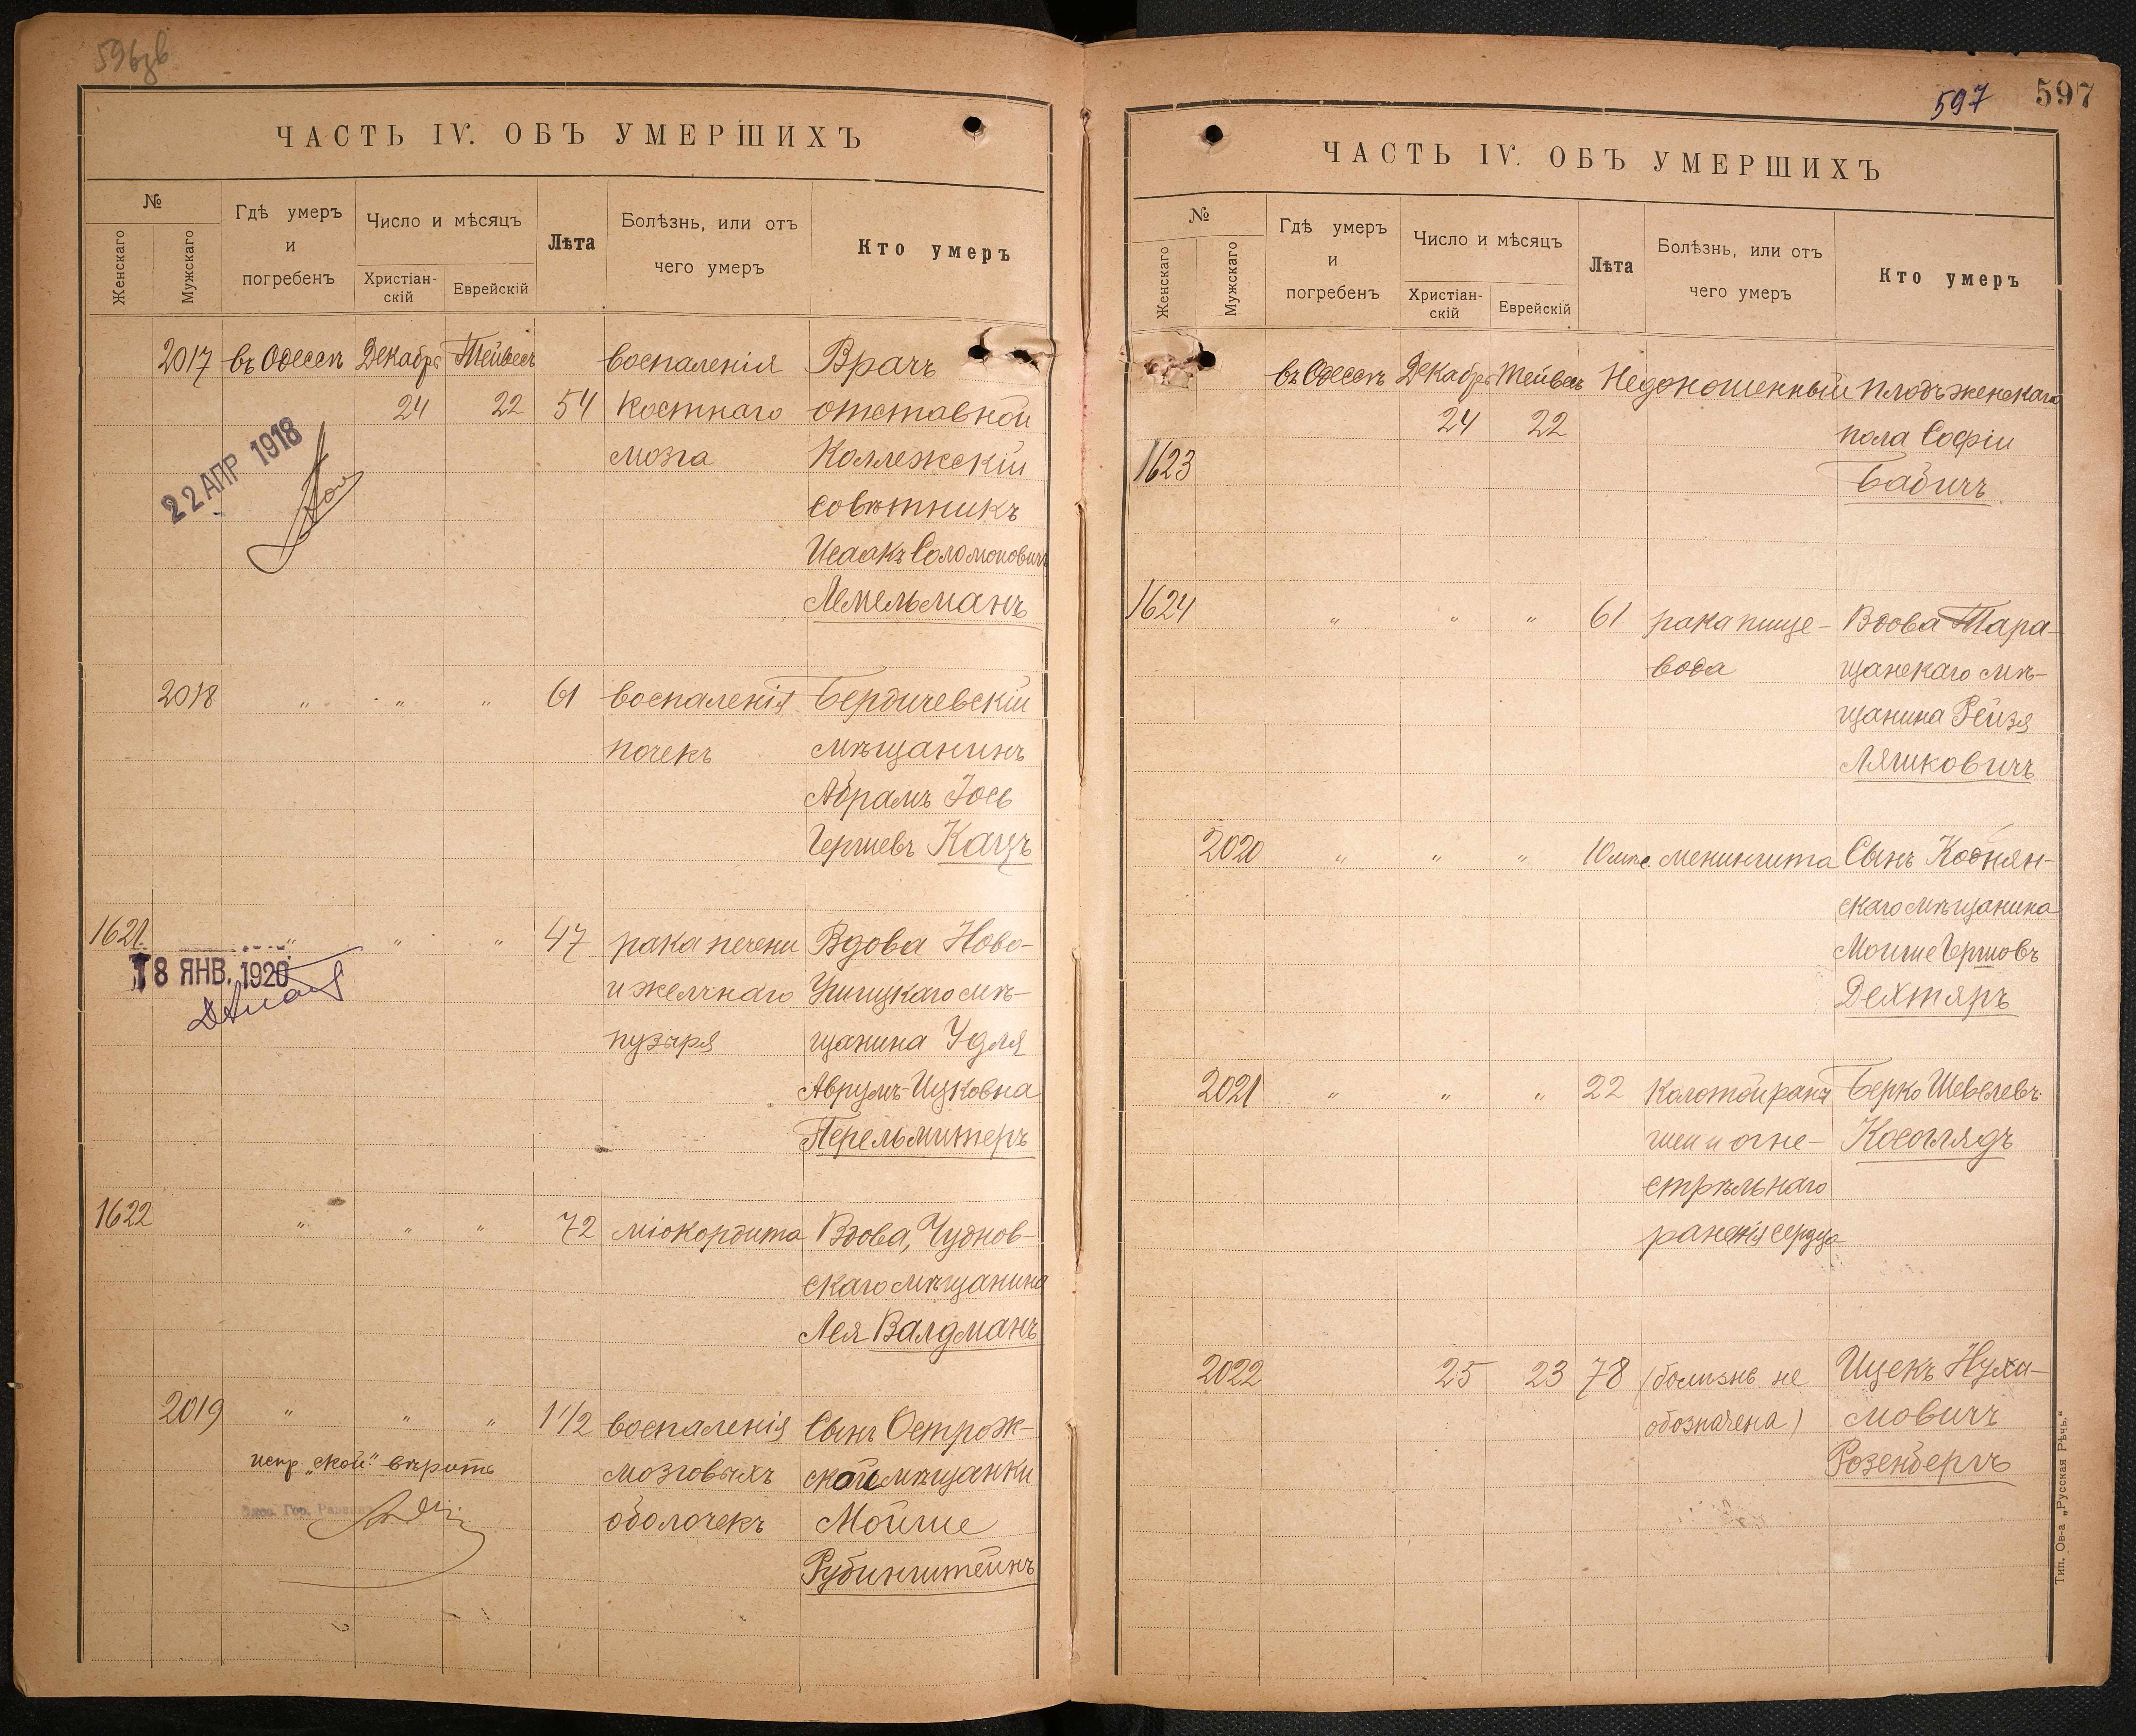 596зв
ЧАСТЬ IV. ОБЪ УМЕРШИХЪ
№
Женскаго
Мужскаго
Гдѣ умеръ
и
погребенъ
Число и мѣсяцъ
Христіан-
скій
Еврейскій
Лѣта
Болѣзнь, или отъ
чего умеръ
Кто умеръ
2017 въ Одессѣ Декабрь Тейвесъ воспаленія Врачъ
24 22 54 костнаго отставной
мозга Коллежскій
совѣтникъ
Исаакъ Соломоновичъ
Лемельманъ
22 АПР 1918
2018 " " " 61 воспаленія Бердичевскій
почекъ мѣщанинъ
Абрамъ Іось
Гершевъ Кацъ
1621 " " " 47 рака печени Вдова Ново-
и желчнаго Ушицкаго мѣ-
пузыря щанина Удля
Аврумъ-Ицковна
Перельмитеръ
18 ЯНВ. 1920
1622 " " " 72 міокордита Вдова, Чуднов-
скаго мѣщанина
Лея Валдманъ
2019 " " " 1 1/2 воспаленія Сынъ Острож-
мозговыхъ ской мѣщанки
оболочекъ Мойше
Рубинштейнъ
испр. „ской" вѣрить
Гор. Раввинъ
597 597
ЧАСТЬ IV. ОБЪ УМЕРШИХЪ
№
Женскаго
Мужскаго
Гдѣ умеръ
и
погребенъ
Число и мѣсяцъ
Христіан-
скій
Еврейскій
Лѣта
Болѣзнь, или отъ
чего умеръ
Кто умеръ
въ Одессѣ Декабрь Тейвесъ Недоношенный плодъ женскаго
24 22 пола Софіи
1623 Бабичъ
1624 " " " 61 рака пище- Вдова Тара-
вода щанскаго мѣ-
щанина Рейзя
Ляшковичъ
2020 " " " 10 мѣс. менингита Сынъ Коднян-
скаго мѣщанина
Мойше Гершовъ
Дехтяръ
2021 " " " 22 Колотой раны Берко Шевелевъ
шеи и огне- Косоглядъ
стрѣльнаго
раненія сердца
2022 25 23 78 (болѣзнь не Ицекъ Нухи-
обозначена) мовичъ
Розенбергъ
Тип. Ов-а „Русская Рѣчь."